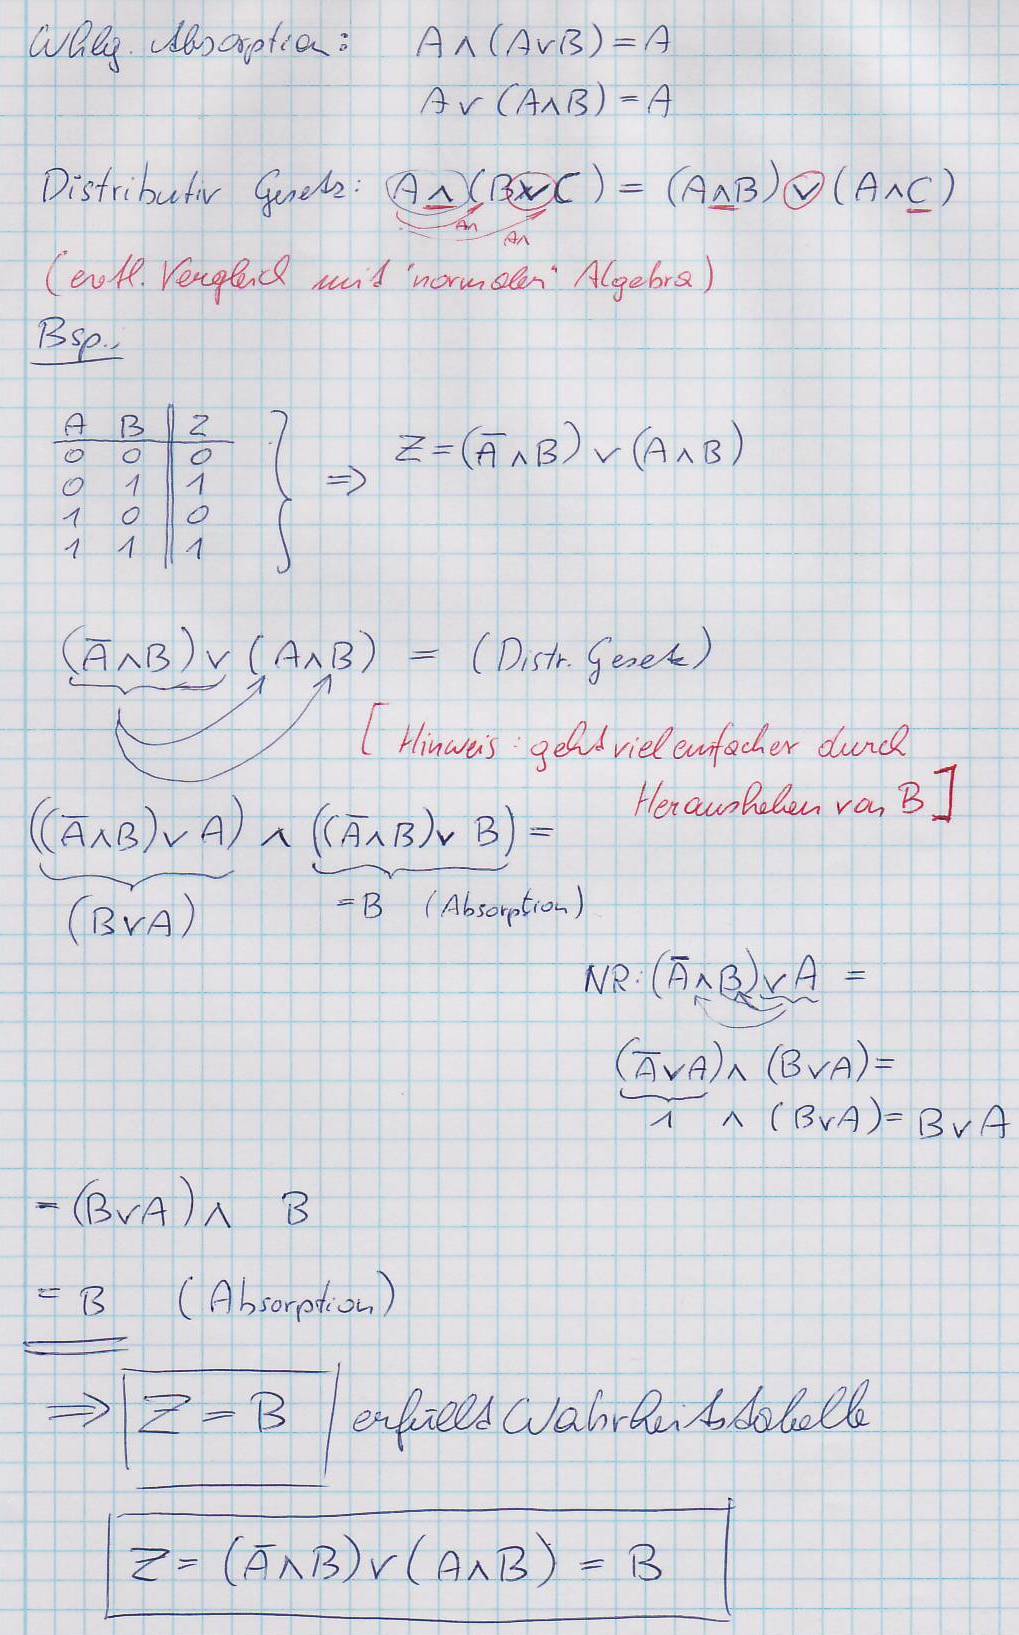 Whlg. Absorption: A∧(A∨B)=A
A∨(A∧B)=A
Distributiv Gesetz: A∧(B∨C)=(A∧B)∨(A∧C)
A∧
A∧
(evtl. Vergleich mit "normalen" Algebra)
Bsp.:
A B Z
0 0 0
0 1 1
1 0 0
1 1 1
⇒ Z=(A̅∧B)∨(A∧B)
(A̅∧B)∨(A∧B) = (Distr. Gesetz)
[Hinweis: geht viel einfacher durch
Herausheben von B]
((A̅∧B)∨A) ∧ ((A̅∧B)∨B)=
(B∨A) =B (Absorption)
NR: (A̅∧B)∨A =
(A̅∨A)∧(B∨A)=
1 ∧ (B∨A)=B∨A
=(B∨A)∧ B
= B (Absorption)
⇒ Z=B erfüllt Wahrheitstabelle
Z=(A̅∧B)∨(A∧B) = B